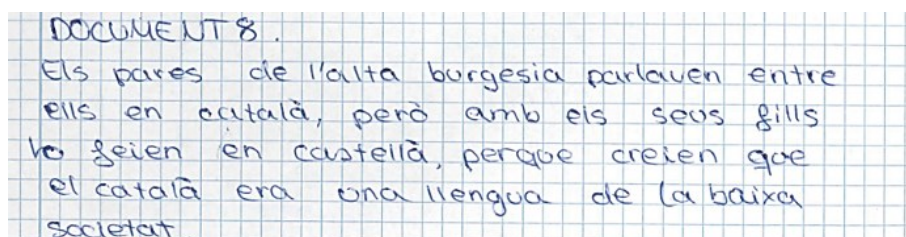 DOCUMENT 8.
Els pares de l'alta burgesia parlaven entre
ells en català, però amb els seus fills
ho feien en castellà, perque creien que
el català era una llengua de la baixa
societat